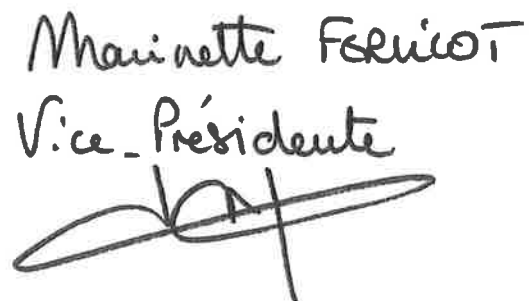 Marinette FERNICOT
Vice-Présidente